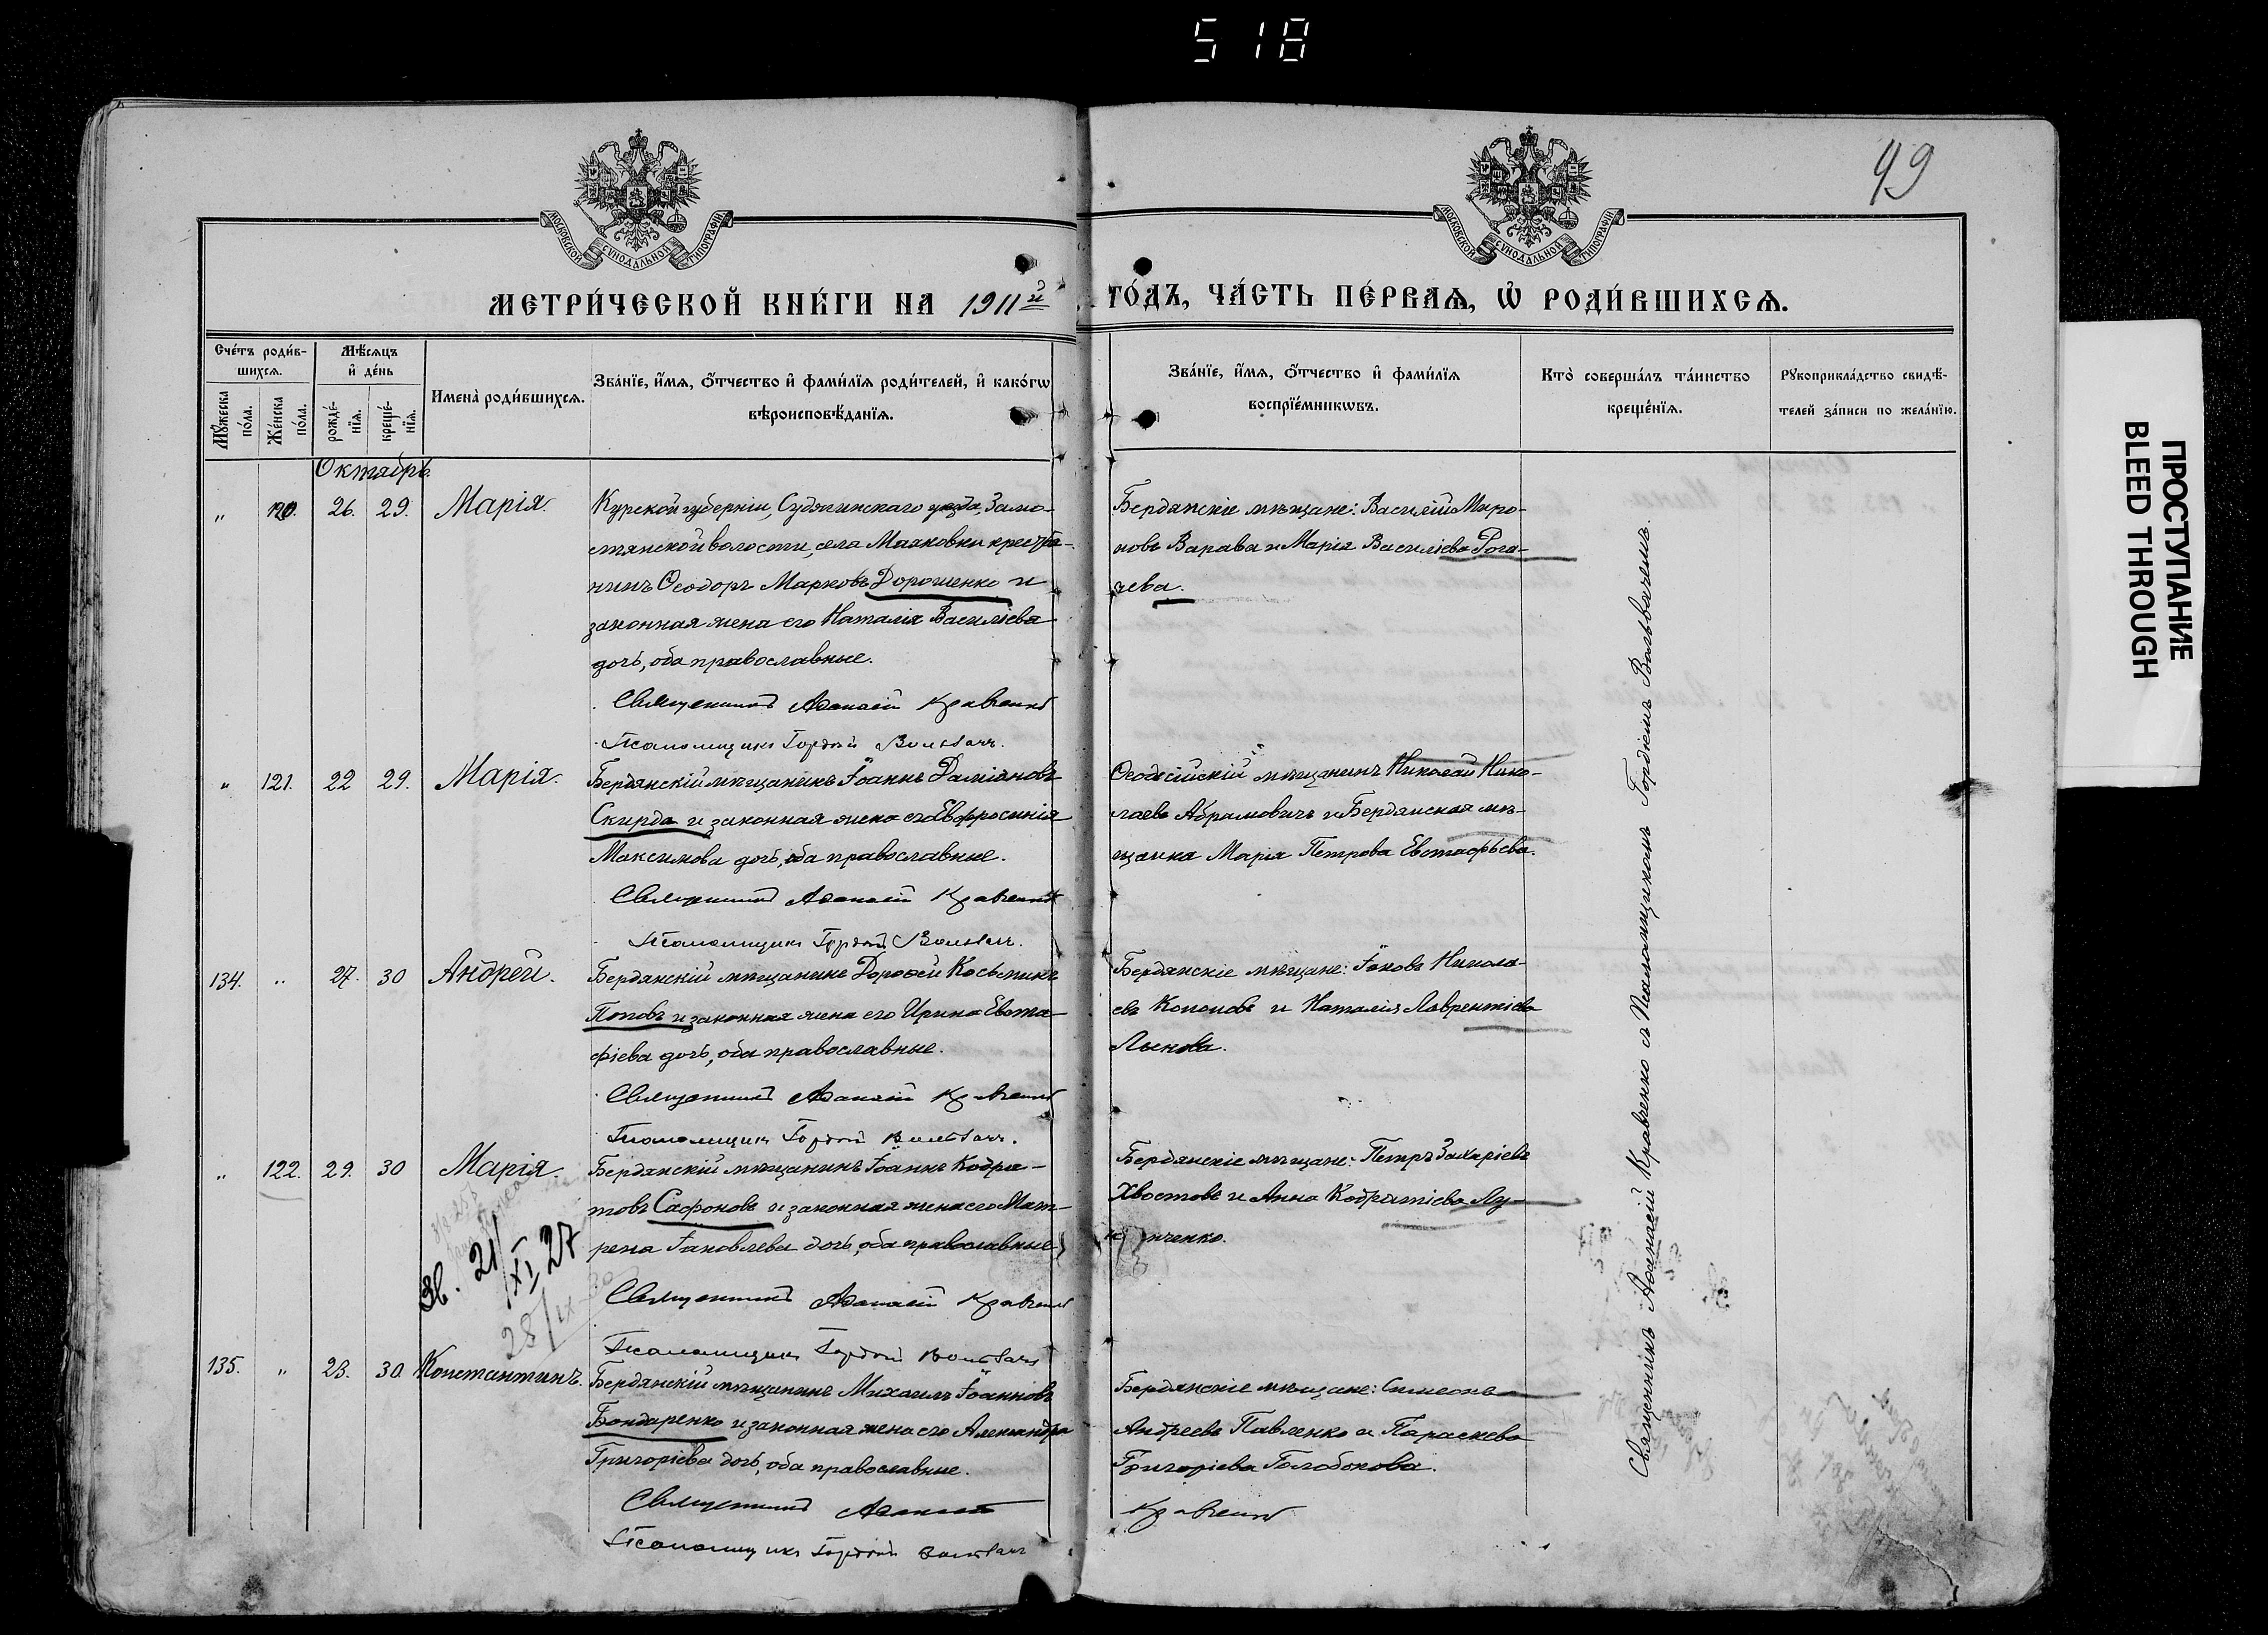 518
49
МОСКОВСКОЙ СѴНОДАЛЬНОЙ ТИПОГРАФІИ
МОСКОВСКОЙ СѴНОДАЛЬНОЙ ТИПОГРАФІИ
МЕТРИ́ЧЕСКОЙ КНИ́ГИ НА 1911й ГО́ДЪ, ЧА́СТЬ ПЕ́РВАѦ, Ѡ҆ РОДИ́ВШИХСѦ.
Сче́тъ роди́в-
шихсѧ.
Мꙋ́жеска по́ла.
Же́нска по́ла.
Мѣ́сѧцъ
и҆ де́нь
рожде́-
нїѧ.
креще́-
нїѧ.
Имена̀ роди́вшихсѧ.
Зва́нїе, и҆́мѧ, ѻ҆́тчество и҆ фами́лїѧ роди́телей, и҆ како́гѡ
вѣроисповѣ́данїѧ.
Зва́нїе, и҆́мѧ, ѻ҆́тчество и҆ фами́лїѧ
воспрїе́мникѡвъ.
Кто̀ соверша́лъ та́инство
креще́нїѧ.
Рꙋкоприкла́дство свидѣ́-
телей за́писи по жела́нїю.
Октябрь.
" 120. 26. 29. Марія.
Курской губерніи, Суджинскаго уѣзда, Замо-
стянской волости, села Маховки крестья-
нинъ Ѳеодоръ Марковъ Дорошенко и
законная жена его Наталія Василіева
дочь, оба православные.
Священникъ Аѳанасій Кравченко
Псаломщикъ Гордій Вольвачъ.
Бердянскіе мѣщане: Василій Миро-
новъ Варава и Марія Василіева Рога-
чева.
" 121. 22 29. Марія.
Бердянскій мѣщанинъ Іоаннъ Даміановъ
Скирда и законная жена его Евфросинія
Максимова дочь, оба православные.
Священникъ Аѳанасій Кравченко
Псаломщикъ Гордій Вольвачъ.
Ѳеодосійскій мѣщанинъ Николай Нико-
лаевъ Абрамовичъ и Бердянская мѣ-
щанка Марія Петрова Евстафьева.
134. " 27. 30 Андрей.
Бердянскій мѣщанинъ Дороѳей Косьминъ
Поповъ и законная жена его Ирина Евста-
фіева дочь, оба православные.
Священникъ Аѳанасій Кравченко
Псаломщикъ Гордій Вольвачъ.
Бердянскіе мѣщане: Іаковъ Никола-
евъ Кононовъ и Наталія Лаврентіева
Лыкова.
" 122. 29. 30 Марія.
Бердянскій мѣщанинъ Іоаннъ Кодра-
товъ Сафоновъ и законная жена его Мат-
рена Іаковлева дочь, оба православные
Священникъ Аѳанасій Кравченко
Псаломщикъ Гордій Вольвачъ
Бердянскіе мѣщане: Петръ Захаріевъ
Хвостовъ и Анна Кодратіева Лу-
нченко.
Зв. 21/XI 27
28/IX
135. " 23. 30. Константинъ.
Бердянскій мѣщанинъ Михаилъ Іоанновъ
Бондаренко и законная жена его Александра
Григоріева дочь, оба православные.
Священникъ Аѳанасій
Кравченко
Псаломщикъ Гордій Вольвачъ
Бердянскіе мѣщане: Симеонъ
Андреевъ Павленко и Параскева
Григоріева Голобокова.
Священникъ Аѳанасій Кравченко съ Псаломщикомъ Гордіемъ Вольвачемъ.
ПРОСТУПАНИЕ
BLEED THROUGH